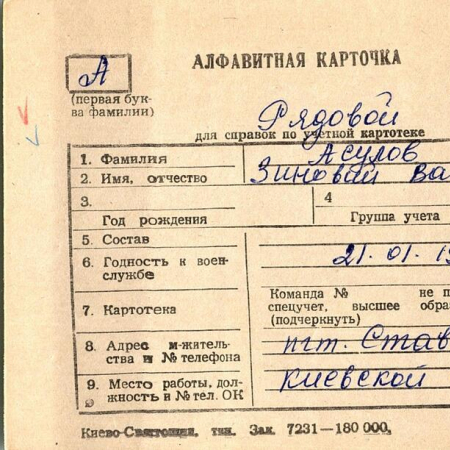 АЛФАВИТНАЯ КАРТОЧКА
А
(первая бук-
ва фамилии)
Рядовой
для справок по учетной картотеке
1. Фамилия Асулов
2. Имя, отчество Зиновий Ва
3.
Год рождения
4
Группа учета
5. Состав
6. Годность к воен-
службе
21.01.19
7. Картотека
Команда № не п
спецучет, высшее обра
(подчеркнуть)
8. Адрес м-житель-
ства и № телефона
пгт. Став
9. Место работы, дол-
жность и № тел. ОК
Киевской
Киево-Святошин. тип. Зак. 7231—180 000.